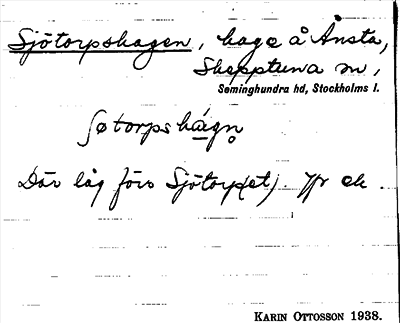 Sjötorpshagen, hage å Ånsta,
Skepptuna sn,
Seminghundra hd, Stockholms l.
ʃøtorpshágn̥
Där låg förr Sjötorp(et). Jfr ek
KARIN OTTOSSON 1938.